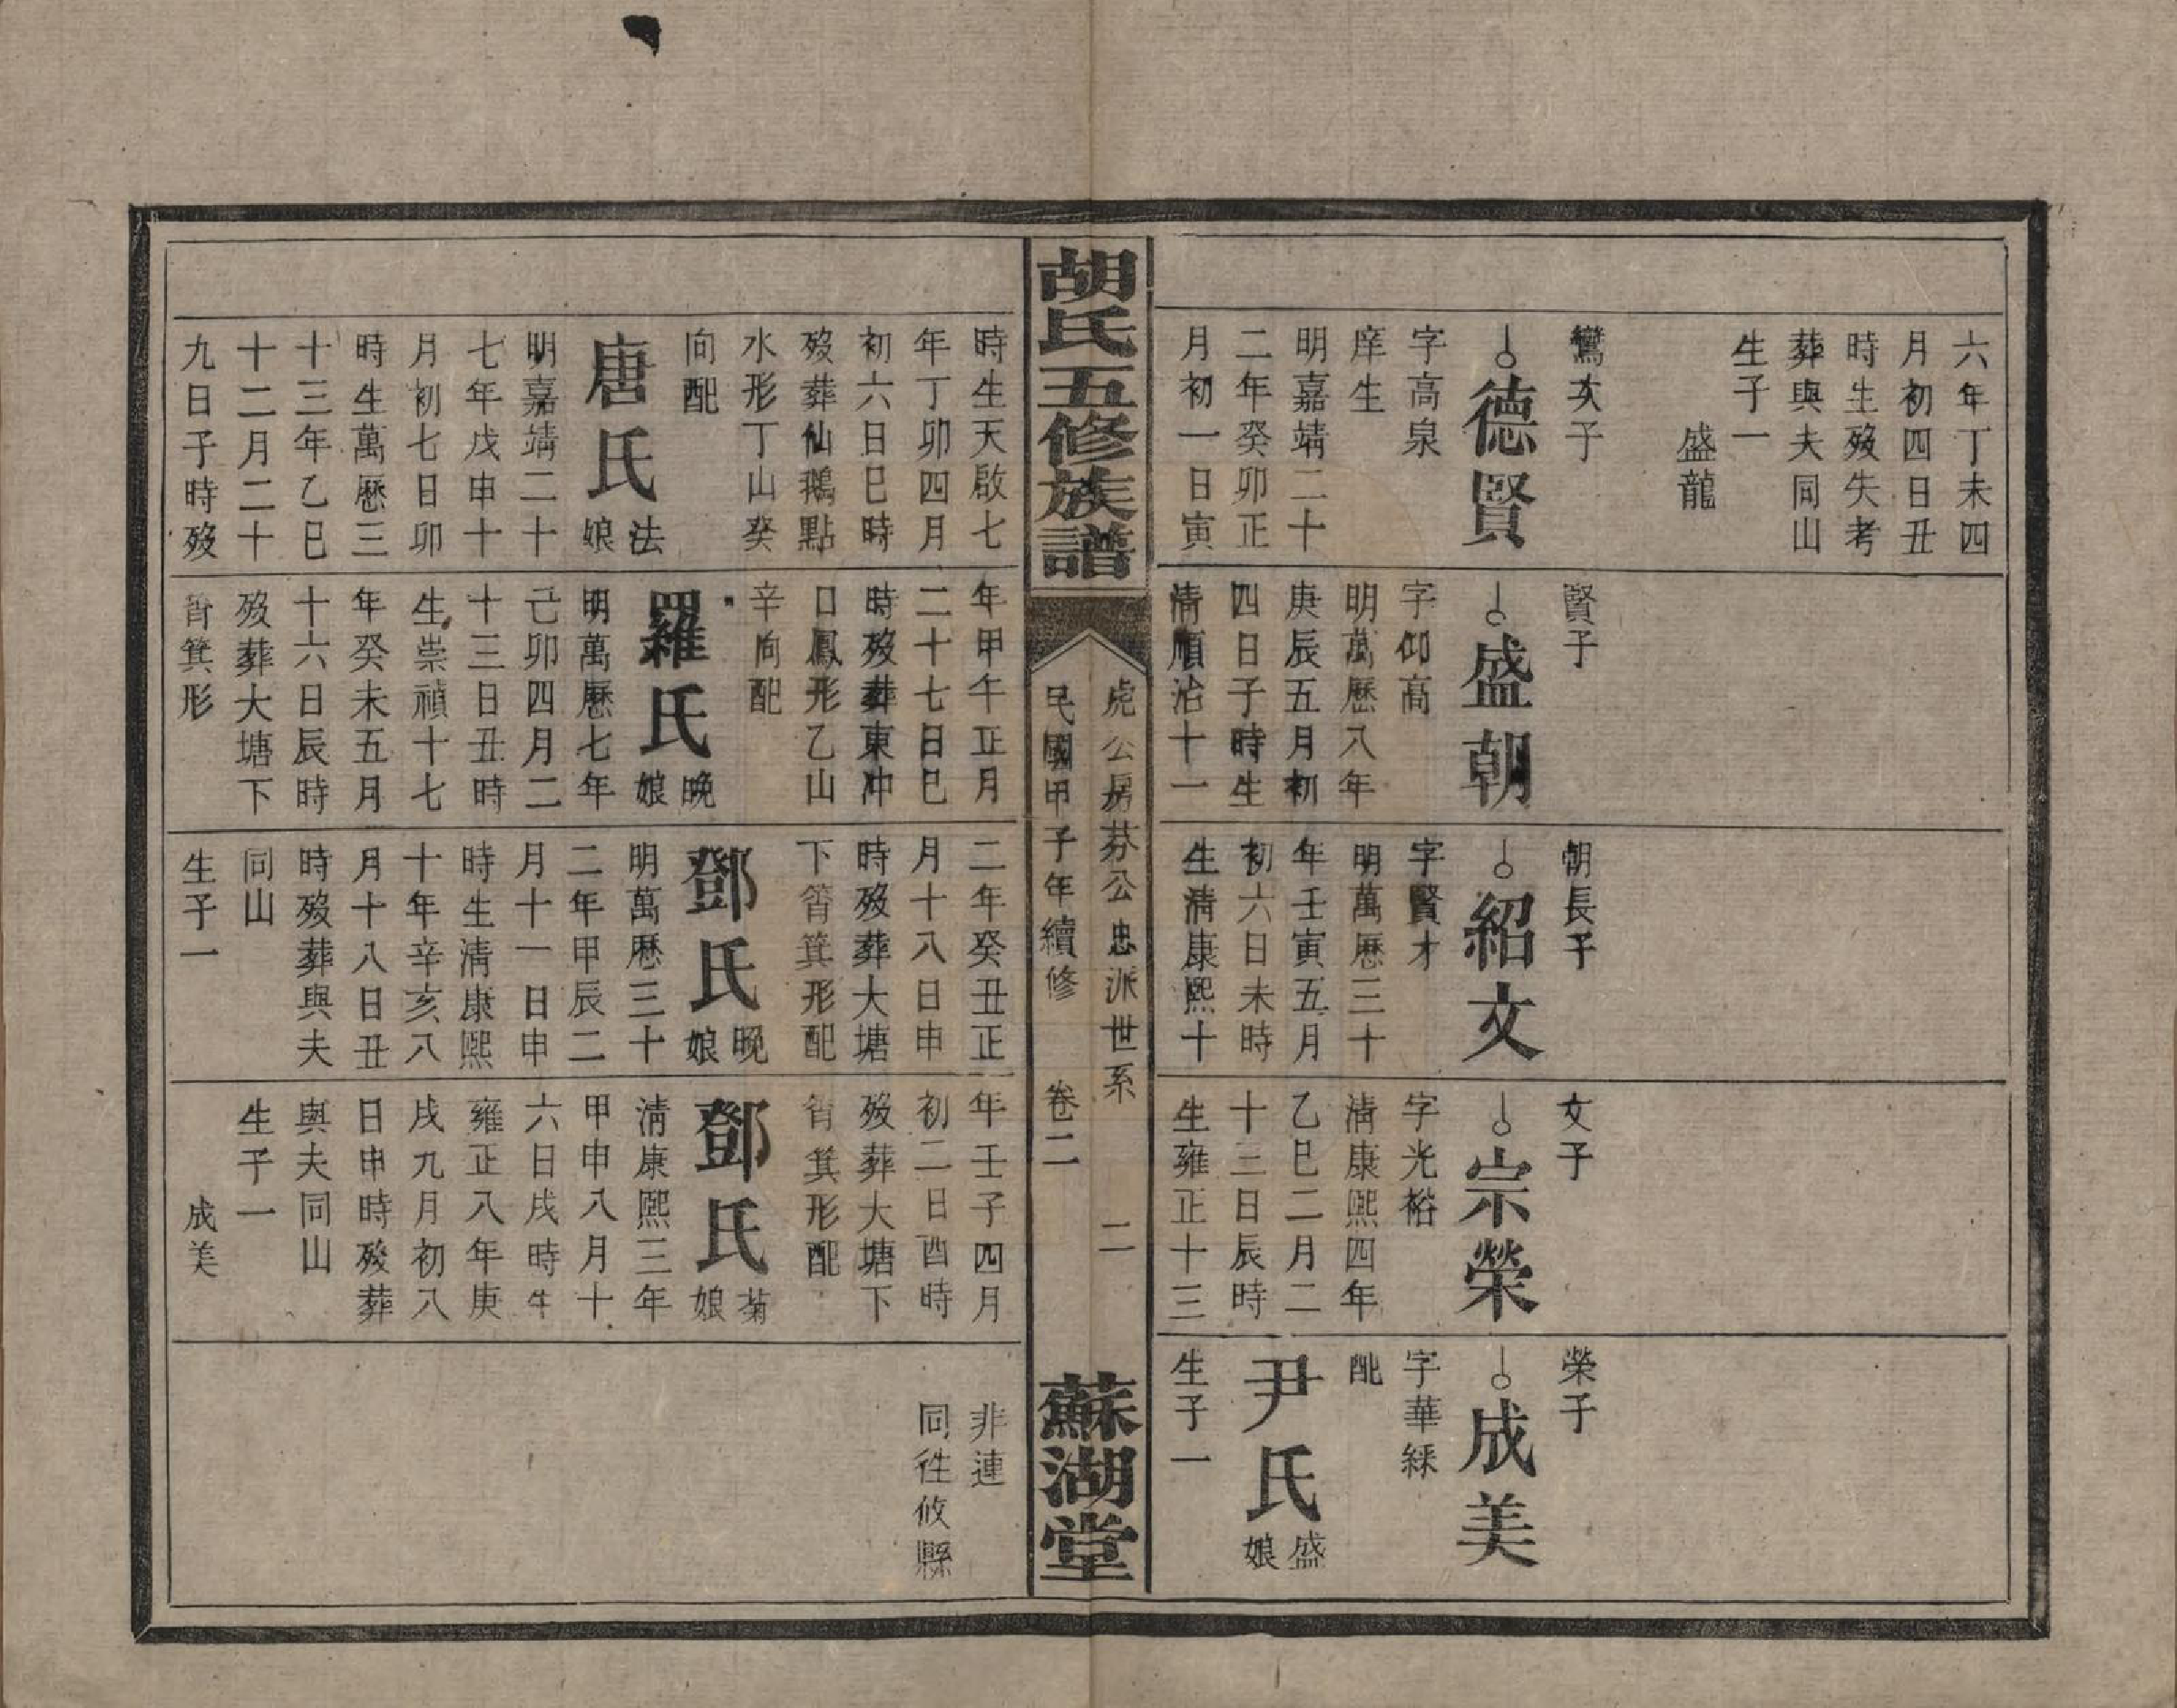 六年丁未四
月初四日丑
時生歿失考
葬與夫同山
生子一
盛龍
鸞次子
德賢
字高泉
庠生
明嘉靖二十
二年癸卯正
月初一日寅
賢子
盛朝
字仰高
明萬歷八年
庚辰五月初
四日子時生
清順治十一
朝長子
紹文
字賢才
明萬歷三十
年壬寅五月
初六日未時
生清康熙十
文子
宗榮
字光裕
清康熙四年
乙巳二月二
十三日辰時
生雍正十三
榮子
成美
字華綵
配
尹氏盛娘
生子一
胡氏五修族譜
虎公房芬公忠派世系 二
民國甲子年續修 卷二
蘇湖堂
時生天啟七
年丁卯四月
初六日巳時
歿葬仙鵝點
水形丁山癸
向配
唐氏法娘
明嘉靖二十
七年戊申十
月初七日卯
時生萬歷三
十三年乙巳
十二月二十
九日子時歿
年甲午正月
二十七日巳
時歿葬東冲
口鳳形乙山
辛向配
羅氏晚娘
明萬歷七年
己卯四月二
十三日丑時
生崇禎十七
年癸未五月
十六日辰時
歿葬大塘下
筲箕形
二年癸丑正
月十八日申
時歿葬大塘
下筲箕形配
鄧氏晚娘
明萬歷三十
二年甲辰二
月十一日申
時生清康熙
十年辛亥八
月十八日丑
時歿葬與夫
同山
生子一
年壬子四月
初二日酉時
歿葬大塘下
筲箕形配
鄧氏菊娘
清康熙三年
甲申八月十
六日戌時生
雍正八年庚
戌九月初八
日申時歿葬
與夫同山
生子一
成美
非連
同徃攸縣